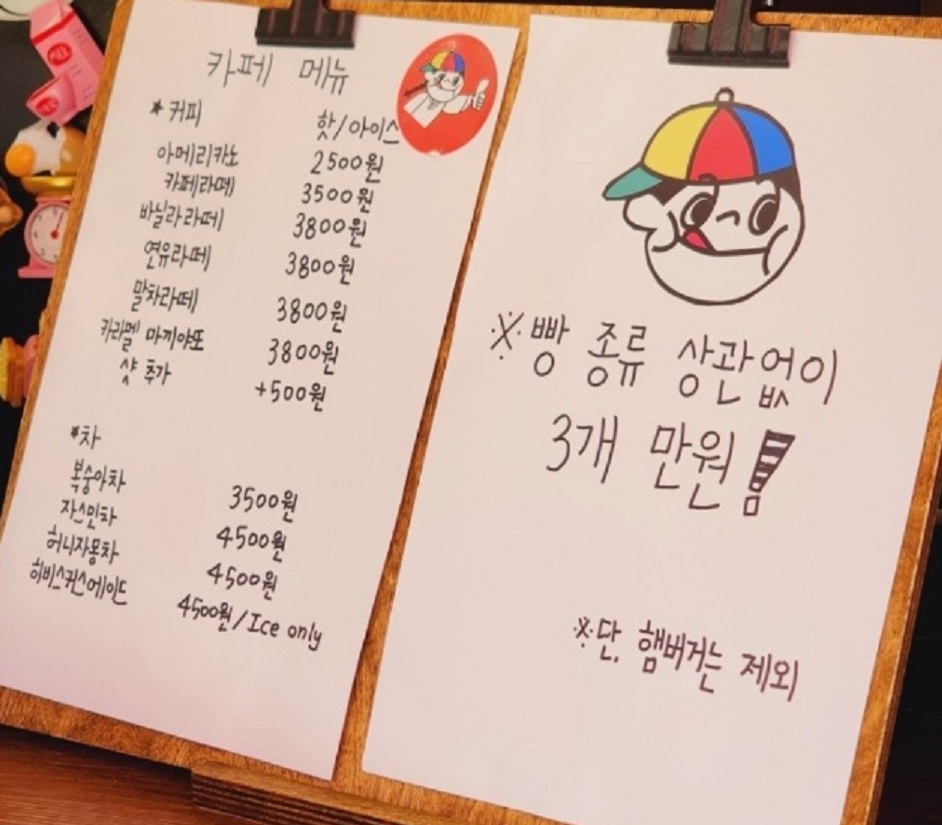 카페 메뉴
* 커피 핫/아이스
아메리카노 2500원
카페라떼 3500원
바닐라라떼 3800원
연유라떼 3800원
말차라떼 3800원
카라멜 마끼야또 3800원
샷 추가 +500원
*차
복숭아차 3500원
자스민차 4500원
허니자몽차 4500원
히비스커스에이드 4500원/Ice only
※빵 종류 상관없이
3개 만원!
※단, 햄버거는 제외